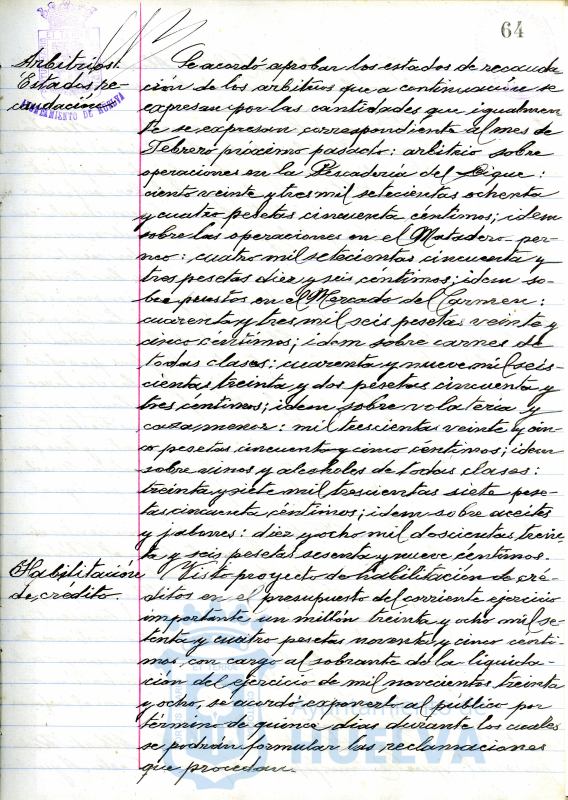 64
Arbitrios.
Estados re-
caudación
AYUNTAMIENTO DE HUELVA
Se acordó aprobar los estados de recauda-
ción de los arbitrios que a continuación se
expresan por las cantidades que igualmen-
te se expresan correspondiente al mes de
Febrero próximo pasado: arbitrio sobre
operaciones en la Pescadería del Dique:
ciento veinte y tres mil setecientas ochenta
y cuatro pesetas cincuenta centimos; idem
sobre las operaciones en el Matadero per-
neo: cuatro mil setecientas cincuenta y
tres pesetas diez y seis céntimos; idem so-
bre puestos en el Mercado del Carmen:
cuarenta y tres mil seis pesetas veinte y
cinco céntimos; idem sobre carnes de
todas clases: cuarenta y nueve mil seis-
cientas treinta y dos pesetas cincuenta y
tres céntimos; idem sobre volatería y
caza menor: mil trescientas veinte y cin-
co pesetas cincuenta y cinco céntimos; idem
sobre vinos y alcoholes de todas clases:
treinta y siete mil trescientas siete pese-
tas cincuenta céntimos; idem sobre aceites
y jabones: diez y ocho mil doscientas trein-
ta y seis pesetas sesenta y nueve centimos.
Habilitación
de crédito.
Visto proyecto de habilitación de cré-
ditos en el presupuesto del corriente ejercicio
importante un millón treinta y ocho mil se-
tenta y cuatro pesetas noventa y cinco cénti-
mos con cargo al sobrante de la liquida-
ción del ejercicio de mil novecientos treinta
y ocho, se acordó exponerlo al público por
término de quince días durante los cuales
se podrán formular las reclamaciones
que procedan.
HUELVA